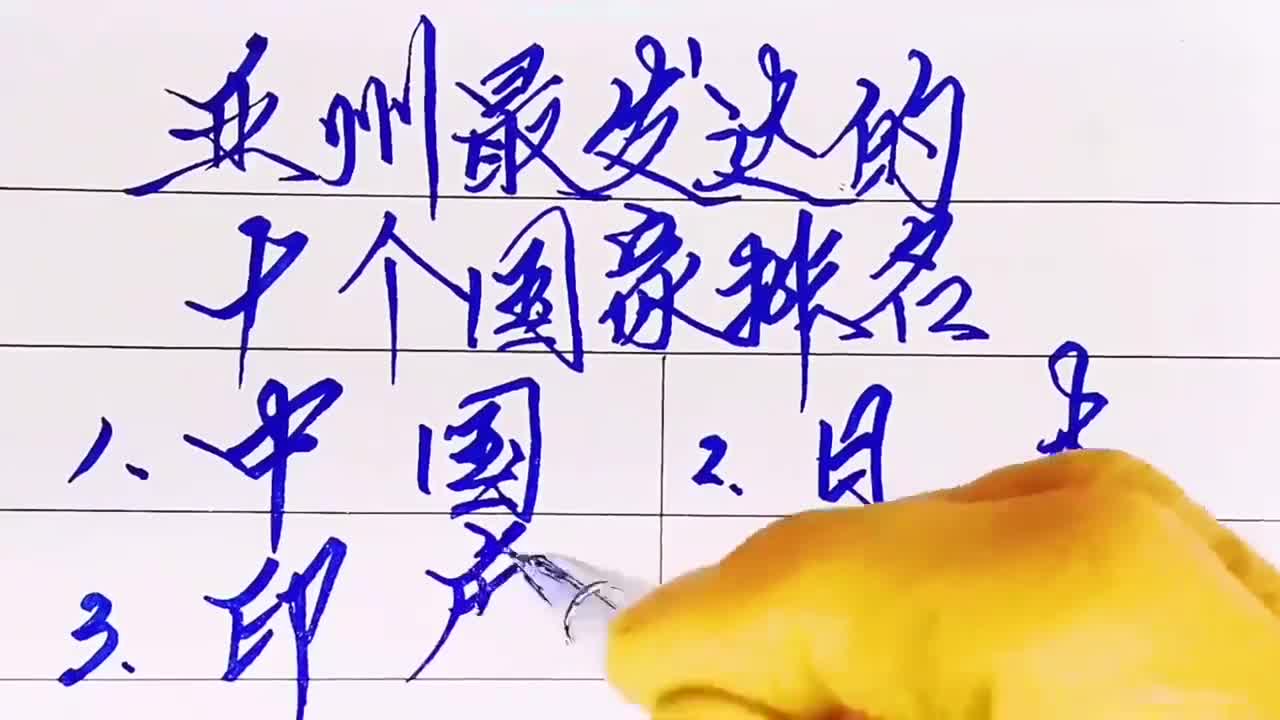 亚州最发达的
十个国家排名
1、中国 2、日本
3、印